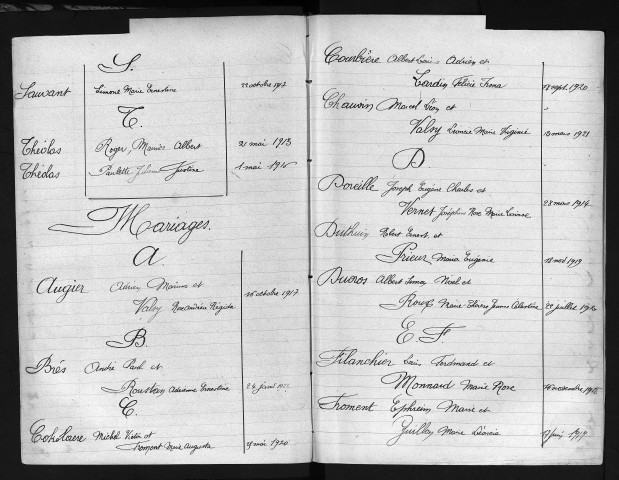 S.
Sauvant Simone Marie Ernestine 22 octobre 1917
T.
Théolas Roger Maurice Albert 21 mai 1913
Théolas Paulette Justine 1 mai
Mariages.
A.
Augier Adrien Marius et
Valvy 16 octobre 1917
B.
Brés André Paul et
Roustan Adrienne Ernestine
C.
Michel Victor et
Fromont Marie Augusta mai 1920
Courbière Albert Louis Adrien et
Tardieu Félicie Irma 18 sept. 1920
Chauvin Marcel Léon et
Valvy Léoncie Marie Virginie 13 mars 1921
D
Doreille Joseph Eugène Charles et
Vernet Joséphine Rose Marie Louise 28 mars 1914
Duthuin Robert Ernest et
Prieur Maria Eugénie 18 nov. 1919
Ducros Albert Noël et
Roux Marie Thérèse Jeanne Célestine juillet
E F
Filanchier Louis Ferdinand et
Monnard Marie Rose 16 novembre
Froment Ephrem Marie et
Guillon Marie Léoncie juin 1919